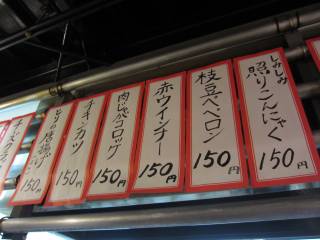 しみしみ
照りこんにゃく
150円
枝豆ペペロン
150円
赤ウインナー
150円
肉じゃがコロッケ
150円
チキンカツ
150円
とりの唐揚げ
150円